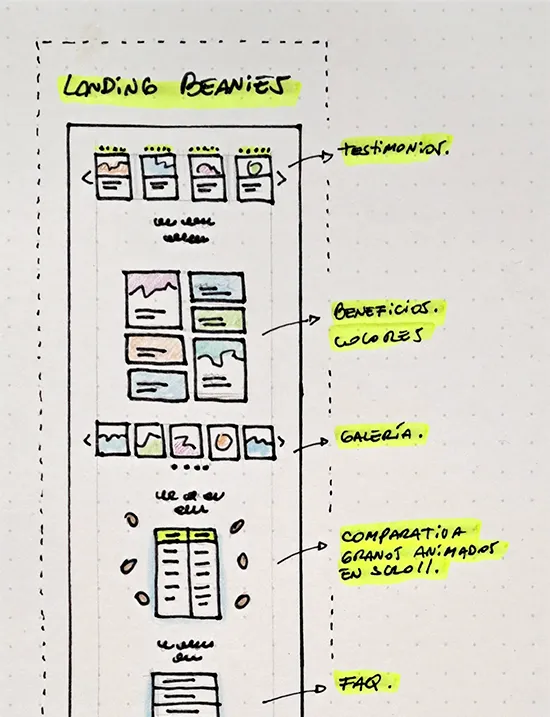 LANDING BEANIES
TESTIMONIOS.
BENEFICIOS.
COLORES
GALERÍA.
COMPARATIVA
GRANOS ANIMADOS
EN SCROLL.
FAQ.